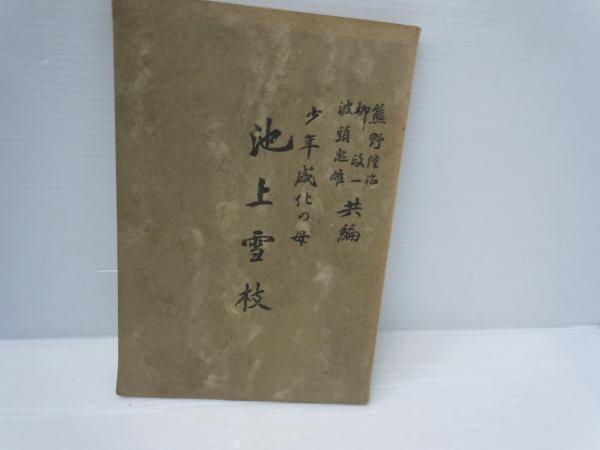 熊野隆治
柳政一
波頭忠雄
共編
少年感化の母
池上雪枝